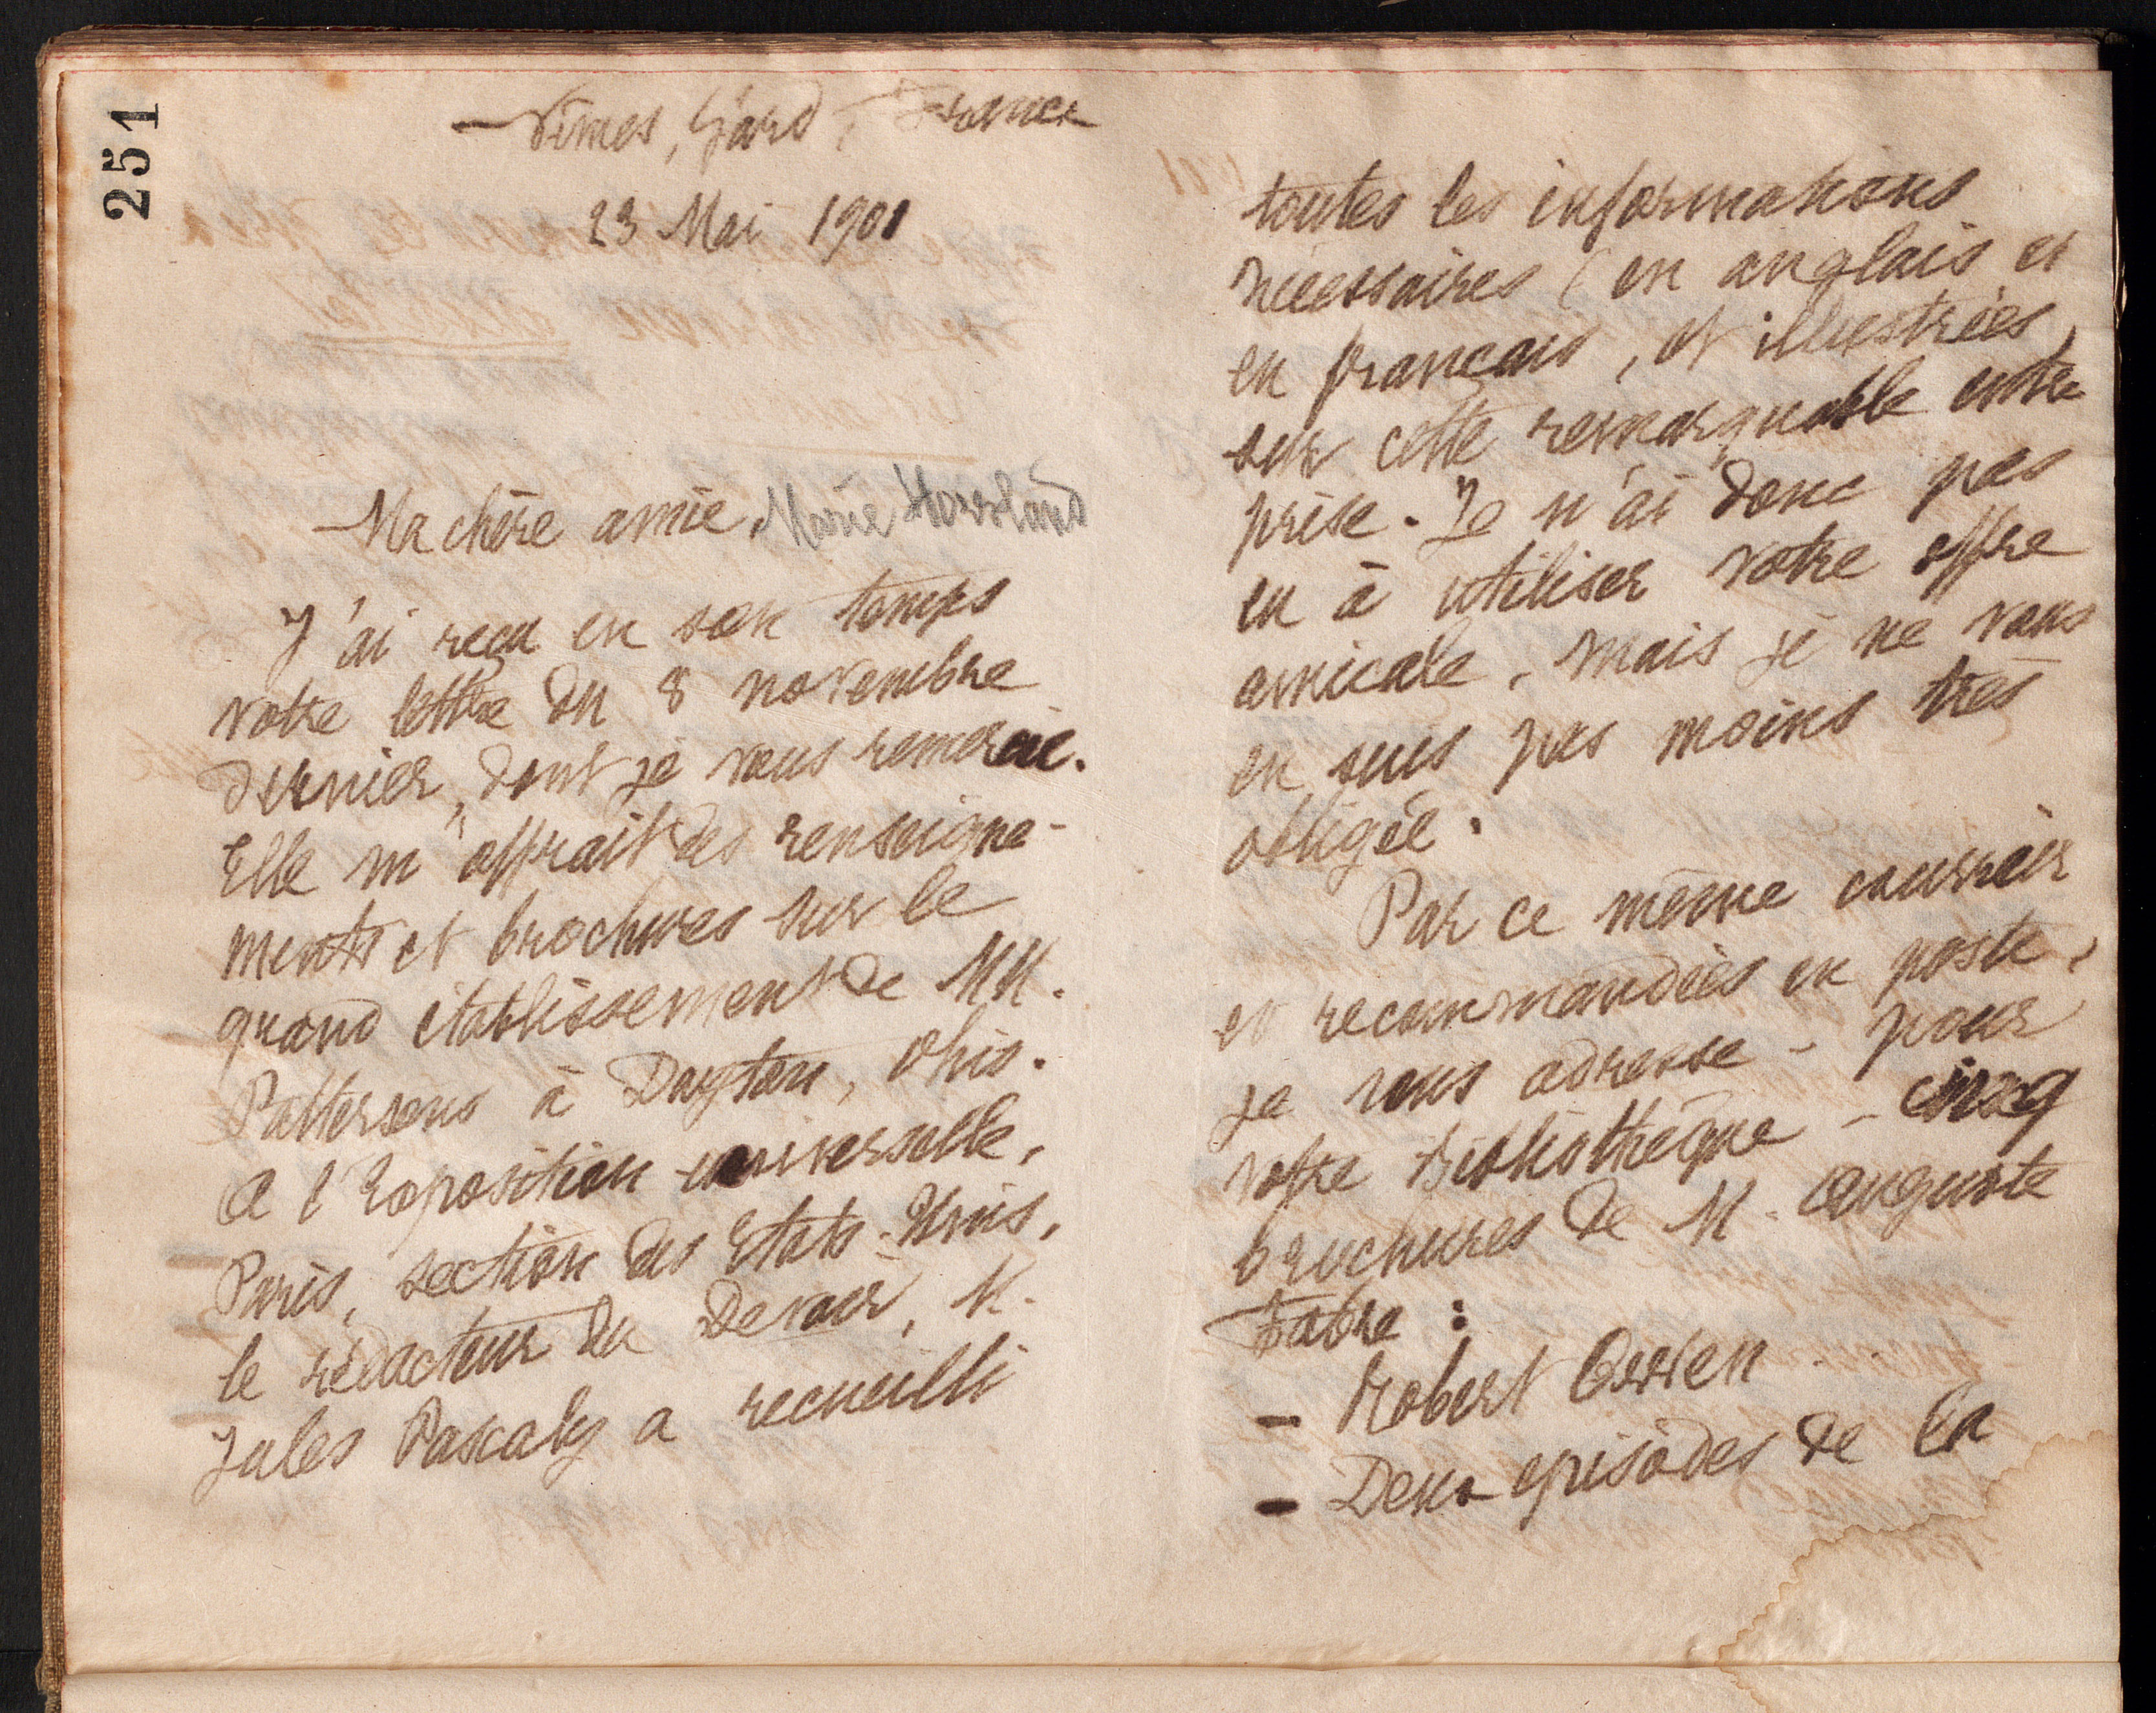 251
Nîmes, Gard, France
23 Mai 1901
Ma chère amie, Marie Howland
J'ai reçu en son temps
votre lettre du 8 novembre
dernier, dont je vous remercie.
Elle m'offrait des renseigne-
ments et brochures sur le
grand établissement de MM.
Pattersons à Dayton, Ohio.
A l'Exposition universelle,
Paris, section des Etats-Unis,
le rédacteur du Devoir, M.
Jules Pascaly a recueilli
toutes les informations
nécessaires (en anglais et
en français, et illustrées)
sur cette remarquable entre
prise. Je n'ai donc pas
eu à utiliser votre offre
amicale, mais je ne vous
en suis pas moins très
obligée.
Par ce même courrier
et recommandées en poste,
je vous adresse - pour
votre Bibliothèque - cinq
brochures de M. Auguste
Fabre :
- Robert Owen
- Deux épisodes de la